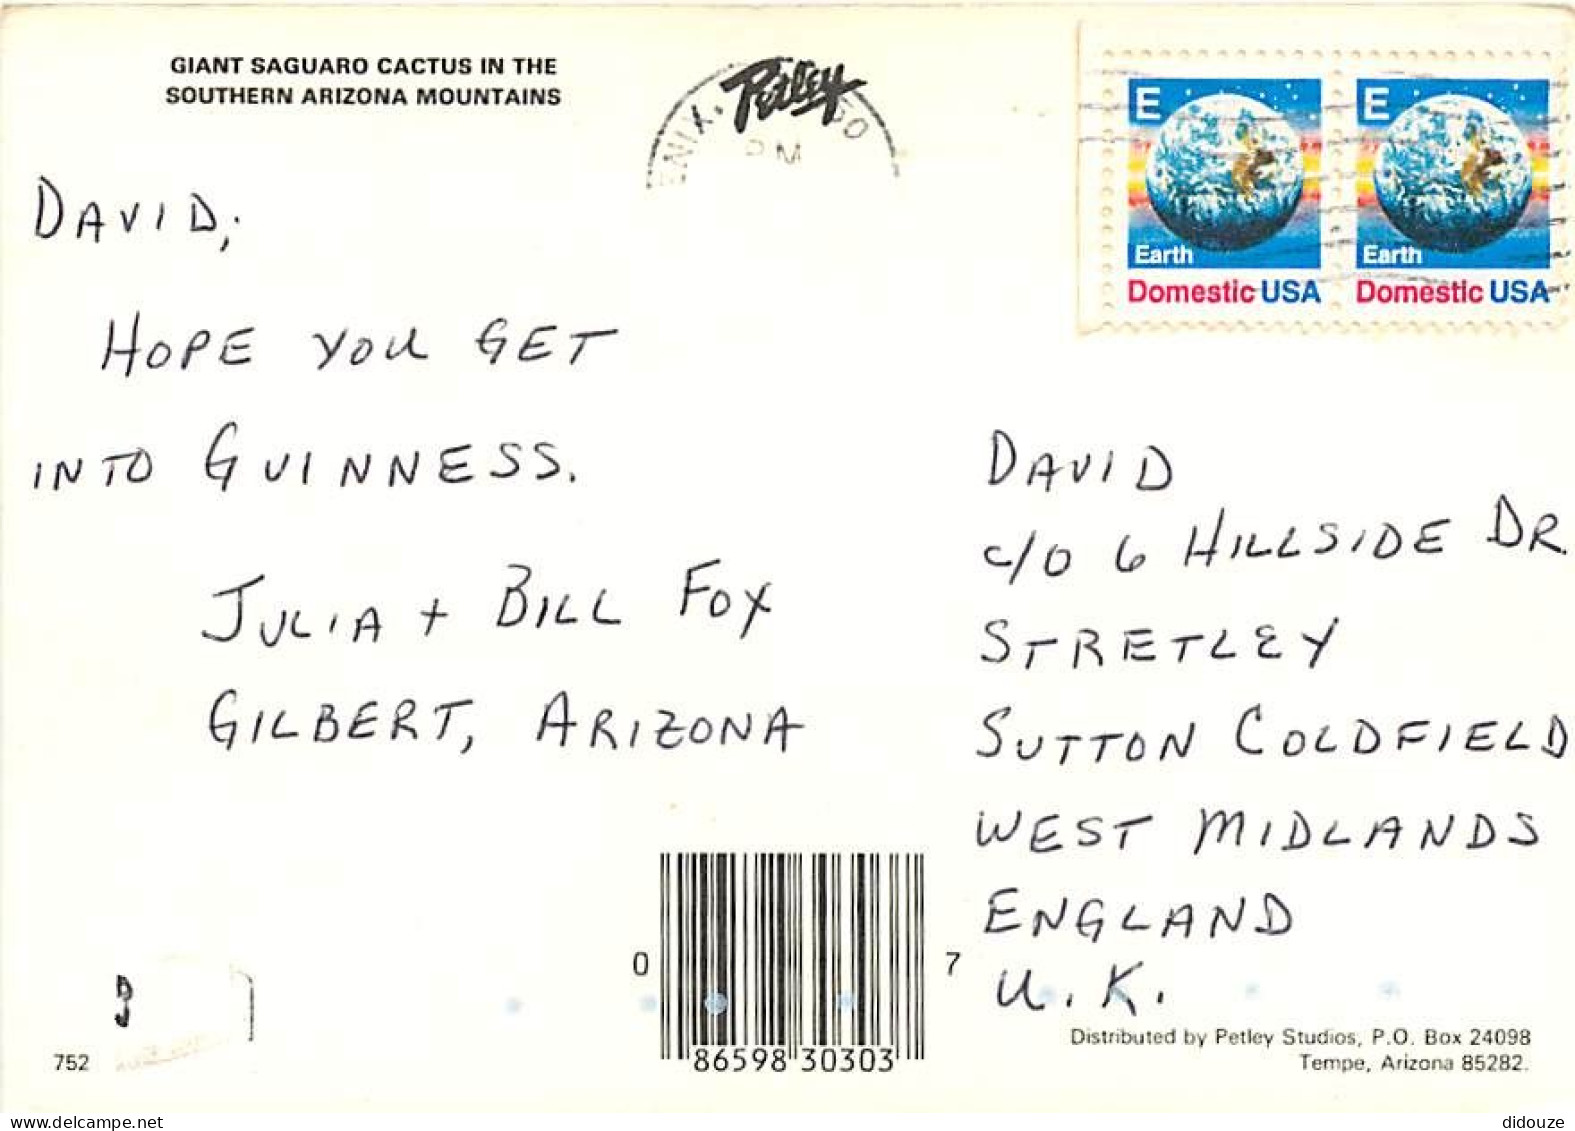 GIANT SAGUARO CACTUS IN THE
SOUTHERN ARIZONA MOUNTAINS
Petley
ENIX,
PM
E
Earth
Domestic USA
E
Earth
Domestic USA
DAVID,
HOPE YOU GET
INTO GUINNESS.
JULIA + BILL FOX
GILBERT, ARIZONA
DAVID
C/O 6 HILLSIDE DR.
STRETLEY
SUTTON COLDFIELD
WEST MIDLANDS
ENGLAND
U.K.
0 86598 30303 7
752
Distributed by Petley Studios, P.O. Box 24098
Tempe, Arizona 85282.
didouze